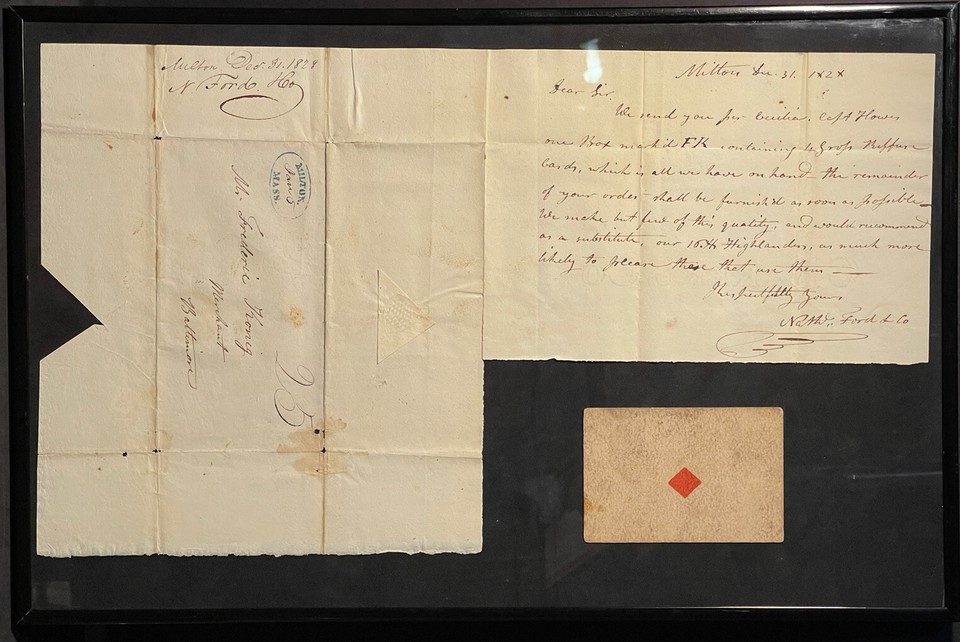 Milton Decr 31. 1828
N Ford & Co
MILTON.
Jan 5
MASS.
Mr. Frederic Konig
Merchant
Baltimore
25
Milton Dec. 31. 1828
Dear Sir.
We send you per Cecilia, Capt Howes
one Box mark'd FK containing 6 Gross
Cards, which is all we have on hand the remainder
of your order shall be furnish'd as soon as possible
We make but few of this quality, and would recommend
as a substitute, our Highlanders, as much more
likely to please those that use them —
Respectfully Yours
Nathl. Ford & Co